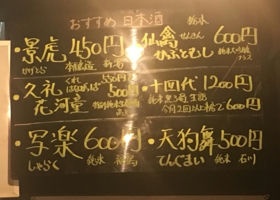 おすすめ日本酒
・景虎 450円
かげとら 本醸造 新潟
・仙禽 純米 600円
せんきん
かぶとむし
・久礼 550円
くれ
花河童 500円
・十四代 1200円
600円
・写楽 600円
しゃらく 純米 福島
・天狗舞 500円
てんぐまい 純米 石川